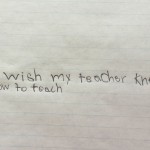 wish my teacher kn
ow to teach